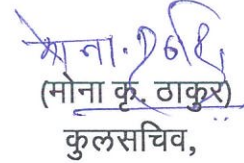 (मोना कृ. ठाकुर)
कुलसचिव,